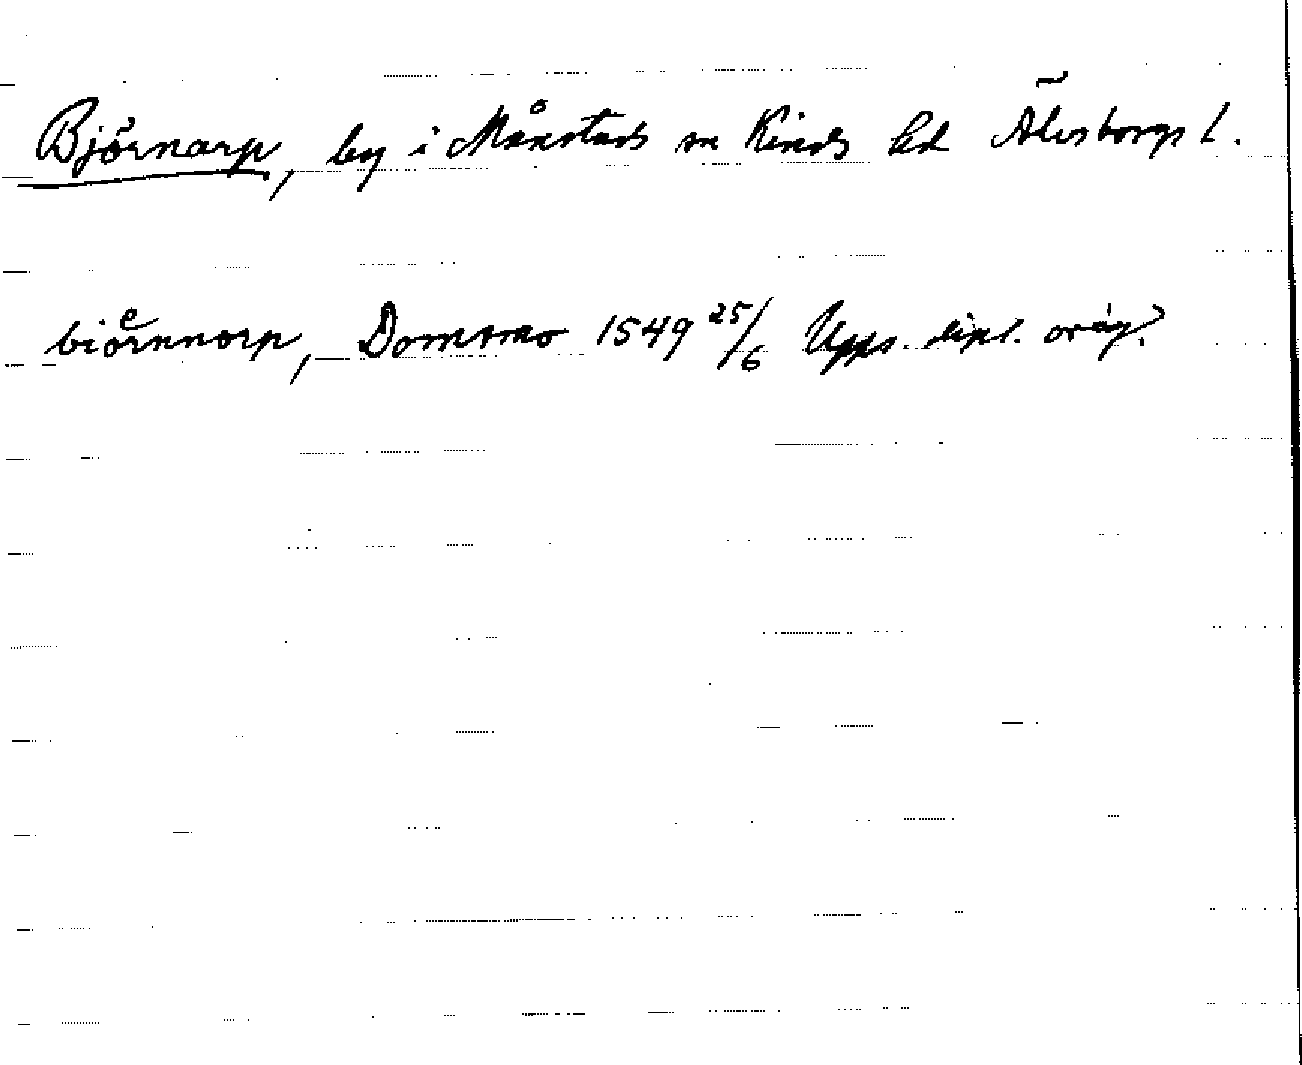 Björnarp, by i Månstads sn Kinds hd Älvsborgs l.
bioͤrnnorp, Domsmo 1549 25/6 Upps. dipl. orig.?